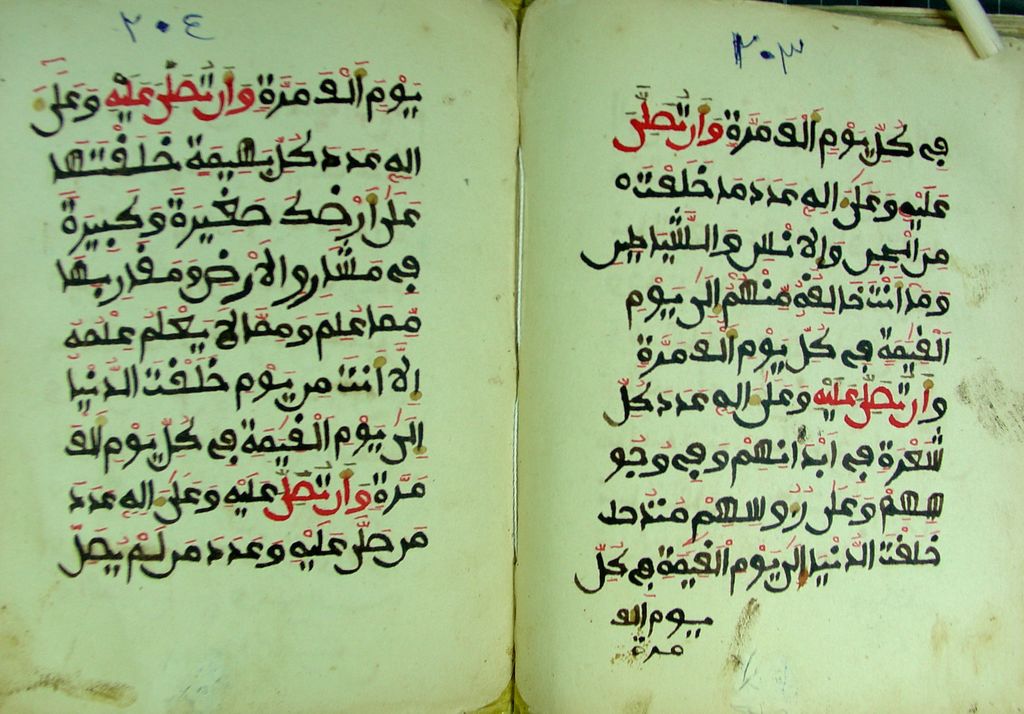 ٢٠٣
في كُلِّ يَوْمٍ اَلْفَ مَرَّةٍ وَاَن تُصَلِّيَ
عَلَيْهِ وَعَلَى اله عَدَدَ مَا خَلَقْتَه
مِنَ الْجِنِّ وَالاِنْسِ وَالشَّيَاطِينِ
وَمَا اَنْتَ خَالِقُهُ مِنْهُمْ اِلَى يَوْمِ
الْقِيَمَةِ فِي كُلِّ يَوْمٍ اَلْفَ مَرَّةٍ
وَاَن تُصَلِّيَ عَلَيْهِ وَعَلَى اله عَدَدَ كُلِّ
شَعْرَةٍ فِي اَبْدَانِهِمْ وَفِي وُجُو
هِهِمْ وَعَلَى رُوسِهِمْ مُنْذُ
خَلَقْتَ الدُّنْيَا اِلَى يَوْمِ الْقِيَمَةِ فِي كُلِّ
يوم الف
مرة
٢٠٤
يَوْمٍ اَلْفَ مَرَّةٍ وَاَن تُصَلِّيَ عَلَيْهِ وَعَلَى
اله عَدَدَ كُلِّ بَهِيمَةٍ خَلَقْتَهَا
عَلَى اَرْضِكَ صَغِيرَةً وَكَبِيرَةً
فِي مَشَارِقِ الاَرْضِ وَمَغَارِبِهَا
مِمَّا عُلِمَ وَمِمَّا لاَ يَعْلَمُ عِلْمَهُ
اِلاَّ اَنْتَ مِن يَوْمِ خَلَقْتَ الدُّنْيَا
اِلَى يَوْمِ الْقِيَمَةِ فِي كُلِّ يَوْمٍ اَلْفَ
مَرَّةٍ وَاَن تُصَلِّيَ عَلَيْهِ وَعَلَى اله عَدَدَ
مَن صَلَّى عَلَيْهِ وَعَدَدَ مَن لَمْ يُصَلِّ